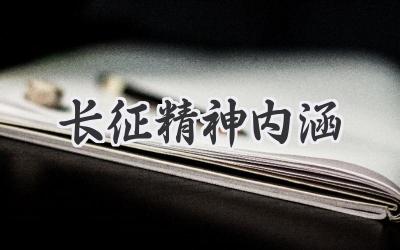 长征精神内涵